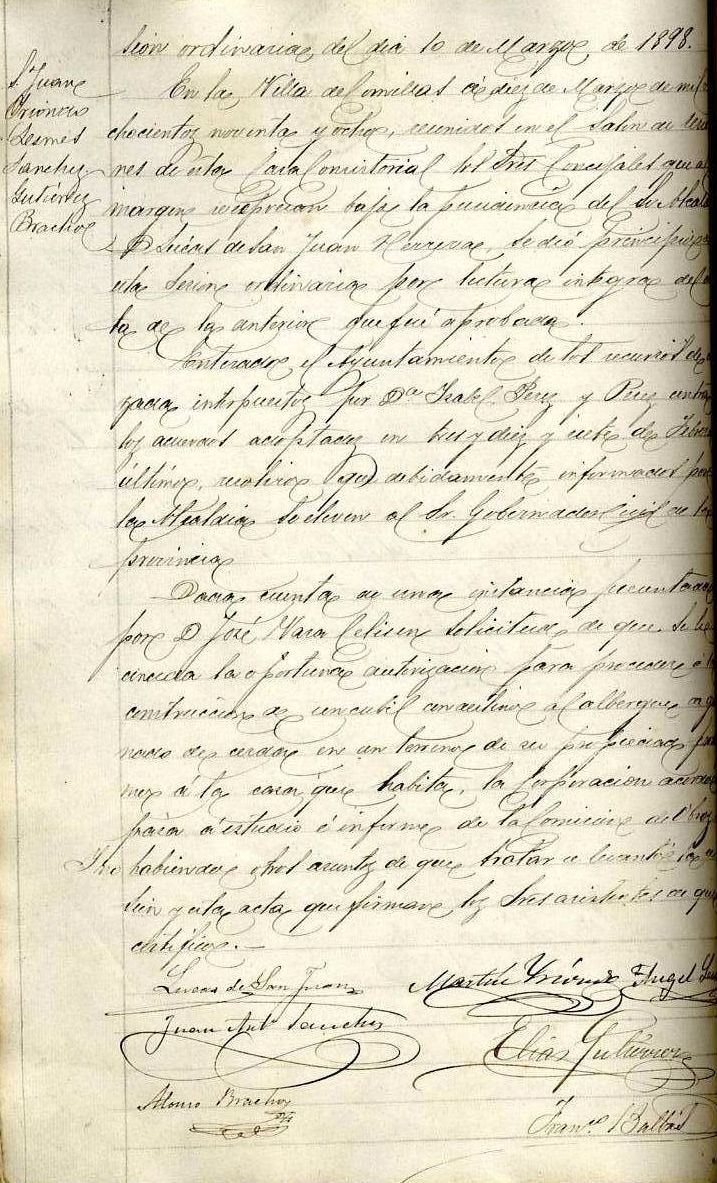 sión ordinaria del dia 10 de Marzo de 1898.
Sn Juan
Oriondo
Lesmes
Sanchez
Gutiérrez
Bracho
En la Villa de Comillas á diez de Marzo de mil
chocientos noventa y ocho, reunidos en el Salon de sesio
nes de esta Casa Consistorial los Sres Concejales que al
margen se expresan bajo la presidencia del Sr Alcalde
D Lucas de San Juan Herrera, se dió principio á
esta sesion ordinaria por lectura integra del ac
ta de la anterior que fué aprobada.
Enterado el Ayuntamiento de los recursos de
zada interpuestos por Da Isabel Perez y Perez contra
los acuerdos adoptados en tres y diez y siete de Febrero
último, resolvio que debidamente informados por
la Alcaldia se eleven al Sr. Gobernador civil de la
provincia
Dada cuenta de una instancia presentada
por D José Vara Celis en solicitud de que se le
conceda la oportuna autorizacion para proceder á la
construccion de un cubil con destino al albergue de ga
nado de cerda en un terreno de su propiedad pró
ximo á la casa que habita, la Corporacion acordó
pasara á estudio é informe de la Comision de Obras
Y no habiendo otros asuntos de que tratar se levantó la se
sion y esta acta que firman los Sres asistentes de que
certifico.—
Lucas de San Juan
Martin Oriondo
Angel
Juan Anto Sanchez
Elias Gutierrez
Alonso Bracho
Franco Balbás